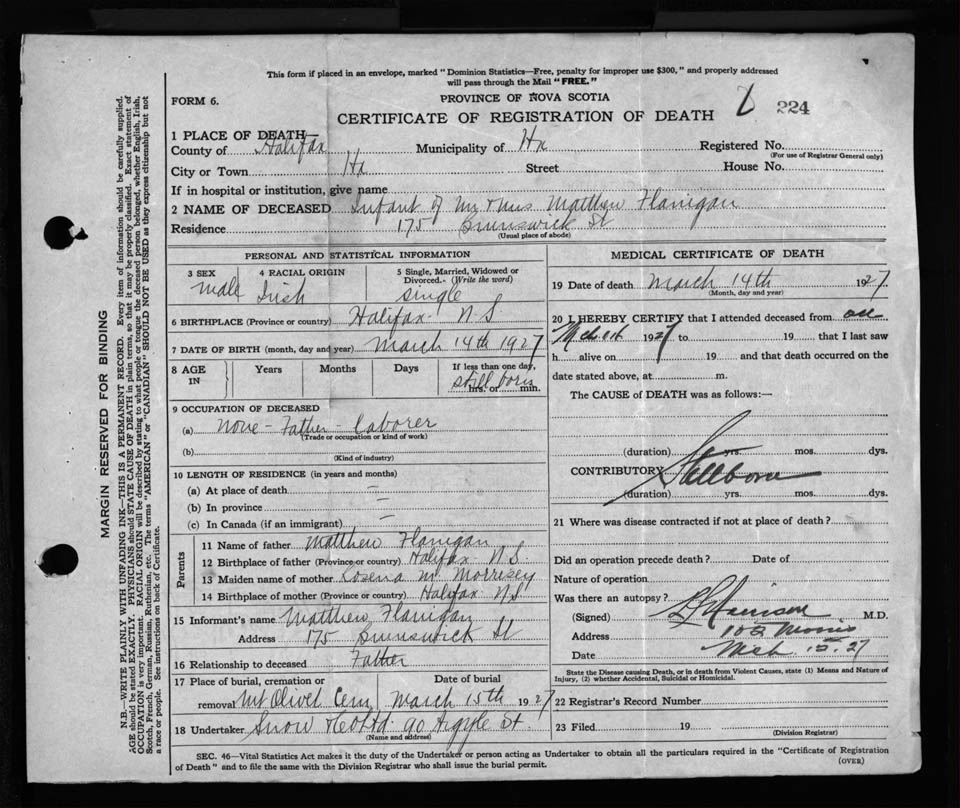 This form if placed in an envelope, marked "Dominion Statistics—Free, penalty for improper use $300," and properly addressed
will pass through the Mail "FREE."
FORM 6.
PROVINCE OF NOVA SCOTIA
CERTIFICATE OF REGISTRATION OF DEATH
224
1 PLACE OF DEATH—
County of Halifax Municipality of Hx Registered No.
(For use of Registrar General only)
City or Town Hx Street House No.
If in hospital or institution, give name
2 NAME OF DECEASED Infant of Mr & Mrs Matthew Flanigan
Residence 175 Brunswick St
(Usual place of abode)
PERSONAL AND STATISTICAL INFORMATION
3 SEX 4 RACIAL ORIGIN 5 Single, Married, Widowed or
Divorced.- (Write the word)
Male Irish single
6 BIRTHPLACE (Province or country) Halifax N.S.
7 DATE OF BIRTH (month, day and year) March 14th 1927
8 AGE IN Years Months Days If less than one day,
still born hrs. or min.
9 OCCUPATION OF DECEASED
(a) None - Father - Laborer
(Trade or occupation or kind of work)
(b)
(Kind of industry)
10 LENGTH OF RESIDENCE (in years and months)
(a) At place of death —
(b) In province —
(c) In Canada (if an immigrant) —
Parents
11 Name of father Matthew Flanigan
12 Birthplace of father (Province or country) Halifax N.S
13 Maiden name of mother Rosena M. Morrisey
14 Birthplace of mother (Province or country) Halifax N.S.
15 Informant's name Matthew Flanigan
Address 175 Brunswick St
16 Relationship to deceased Father
17 Place of burial, cremation or Date of burial
removal Mt Olivet Cem March 15th 1927
18 Undertaker Snow & Co Ltd 90 Argyle St.
(Name and address)
MEDICAL CERTIFICATE OF DEATH
19 Date of death March 14th 1927
(Month, day and year)
20 I HEREBY CERTIFY that I attended deceased from
1927 to 19 that I last saw
h alive on 19 and that death occurred on the
date stated above, at m.
The CAUSE of DEATH was as follows:—
(duration) yrs. mos. dys.
CONTRIBUTORY Stillborn
(duration) yrs. mos. dys.
21 Where was disease contracted if not at place of death?
Did an operation precede death? Date of
Nature of operation
Was there an autopsy?
(Signed) Harrison M.D.
Address 102 Morris
Date Mch 15.27
State the Disease causing Death, or in death from Violent Causes, state (1) Means and Nature of
Injury, (2) whether Accidental, Suicidal or Homicidal.
22 Registrar's Record Number
23 Filed 19
(Division Registrar)
SEC. 46—Vital Statistics Act makes it the duty of the Undertaker or person acting as Undertaker to obtain all the particulars required in the "Certificate of Registration
of Death" and to file the same with the Division Registrar who shall issue the burial permit.
(OVER)
MARGIN RESERVED FOR BINDING
N.B.—WRITE PLAINLY WITH UNFADING INK—THIS IS A PERMANENT RECORD. Every item of information should be carefully supplied.
AGE should be stated EXACTLY. PHYSICIANS should STATE CAUSE OF DEATH in plain terms, so that it may be properly classified. Exact statement of
OCCUPATION is very important. RACIAL ORIGIN will be described by stating to what people or tongue the deceased person belonged, whether English, Irish,
Scotch, French, German, Russian, Ruthenian, etc. The terms "AMERICAN" or "CANADIAN" SHOULD NOT BE USED as they express citizenship but not
a race or people. See instructions on back of Certificate.